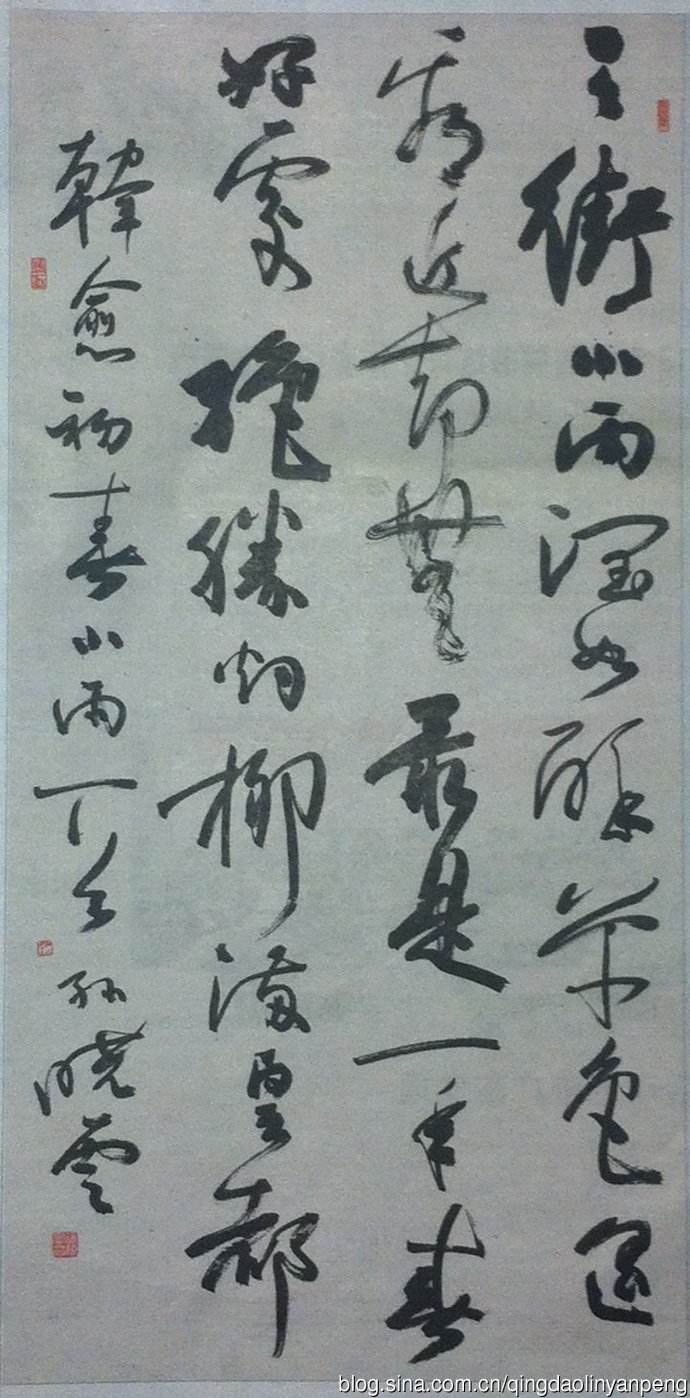 天街小雨潤如酥草色遥
看近却無最是一年春
好處絕勝烟柳滿皇都
韓愈初春小雨丁亥孫曉雲
blog.sina.com.cn/qingdaolinyanpeng